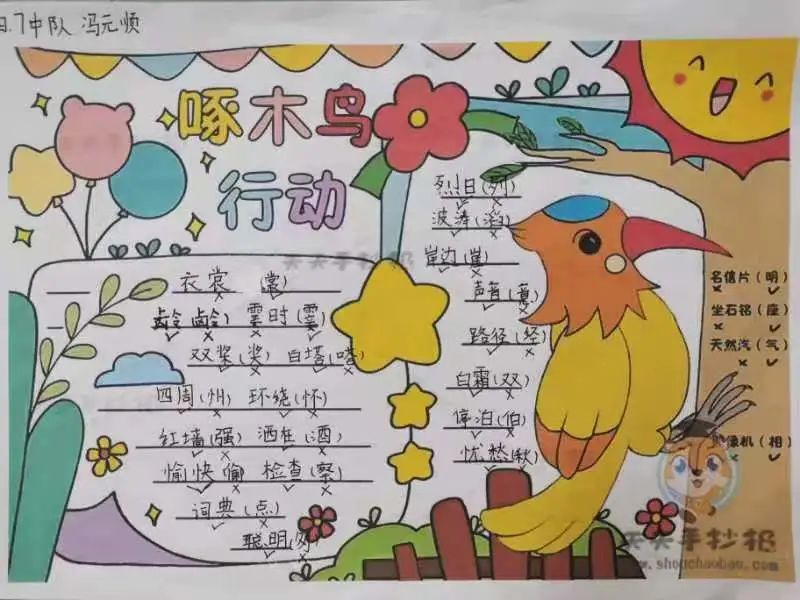 7中队 冯元顺
啄木鸟
行动
天天手抄报
衣裳 (掌)
霎时(
双桨(浆) 白塔(嗒)
四周(州) 环绕(怀)
红墙(强) 洒在(酒)
愉快(偷) 检查(察)
词典(点)
聪明(
烈日(列)
波涛(滔)
崖边(崖)
声音(意)
路径(经)
白霜(双)
停泊(伯)
忧愁(秋)
名信片(明)
坐石铭(座)
天然汽(气)
像机(相)
天天手抄报
www.shouchaobao.com